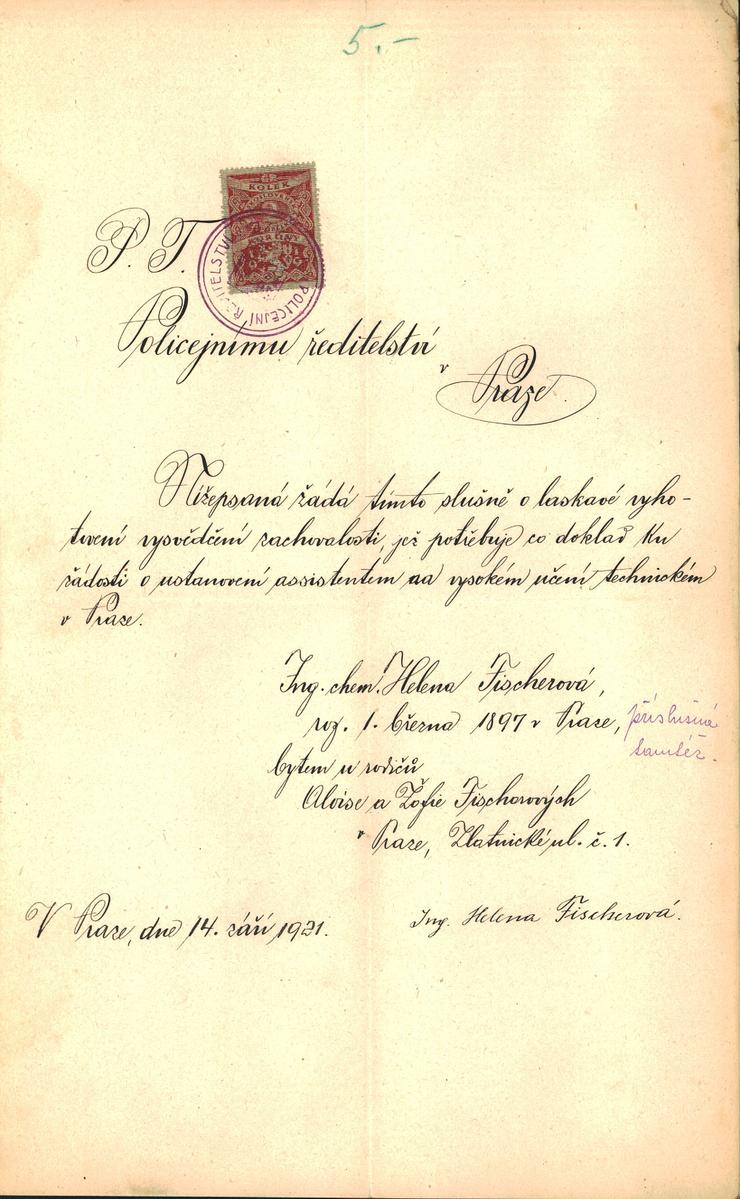 5.–
KOLEK
KORUNY
POLICEJNÍ ŘEDITELSTVÍ
P. T.
Policejnímu ředitelství
v
Praze.
Nížepsaná žádá tímto slušně o laskavé vyho-
tovení vysvědčení zachovalosti, jež potřebuje co doklad ku
žádosti o ustanovení assistentem na vysokém učení technickém
v Praze.
Ing. chem. Helena Fischerová,
roz. 1. března 1897 v Praze, příslušná
tamtéž.
bytem u rodičů
Aloise a Žofie Fischerových
v Praze, Zlatnické ul. č. 1.
V Praze, dne 14. září 1921.
Ing. Helena Fischerová.